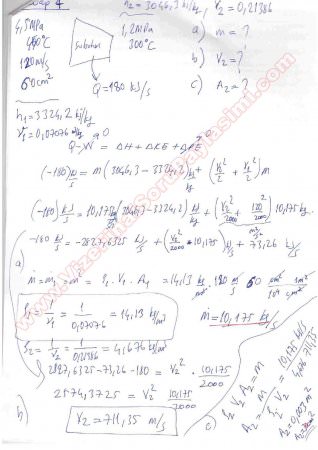 Cevap 4
h₂ = 3046,3 kJ/kg, V₂ = 0,21386
4,5MPa
450°C
120m/s
60cm²
1,2MPa
300°C
Q=180 kJ/s
a) ṁ = ?
b) V₂ = ?
c) A₂ = ?
h₁ = 3324,2 kJ/kg
V₁ = 0,07076 m³/kg
Q-W = ΔH + ΔKE + ΔPE
(-180) kJ/s = m (3046,3 - 3324,2) kJ/kg + (V₂²/2 + V₁²/2) m
(-180) kJ/s = 10,175 kg/s (3046,3 - 3324,2) kJ/kg + (V₂²/2000 + 120²/2000) 10,175 kg/s
-180 kJ/s = -2827,6325 kJ/s + (V₂²/2000 * 10,175) kJ/s + 73,26 kJ/s
a)
ṁ = ṁ₁ = ṁ₂ = ρ₁ . V₁ . A₁ = 14,13 kg/m³ . 120 m/s . 60 cm² . 1m²/10⁴cm²
ρ₁ = 1/V₁ = 1/0,07076 = 14,13 kg/m³
ṁ = 10,175 kg/s
ρ₂ = 1/V₂ = 1/0,21386 = 4,676 kg/m³
2827,6325 - 73,26 - 180 = V₂² . 10,175/2000
2574,3725 = V₂² 10,175/2000
b) V₂ = 711,35 m/s
c)
ρ₂ V₂ A₂ = ṁ
A₂ = ṁ/ρ₂ V₂ = 10,175 kg/s / 4,676 711,35
A₂ = 0,003 m²
www.VizeFinalSoruPaylasimi.com